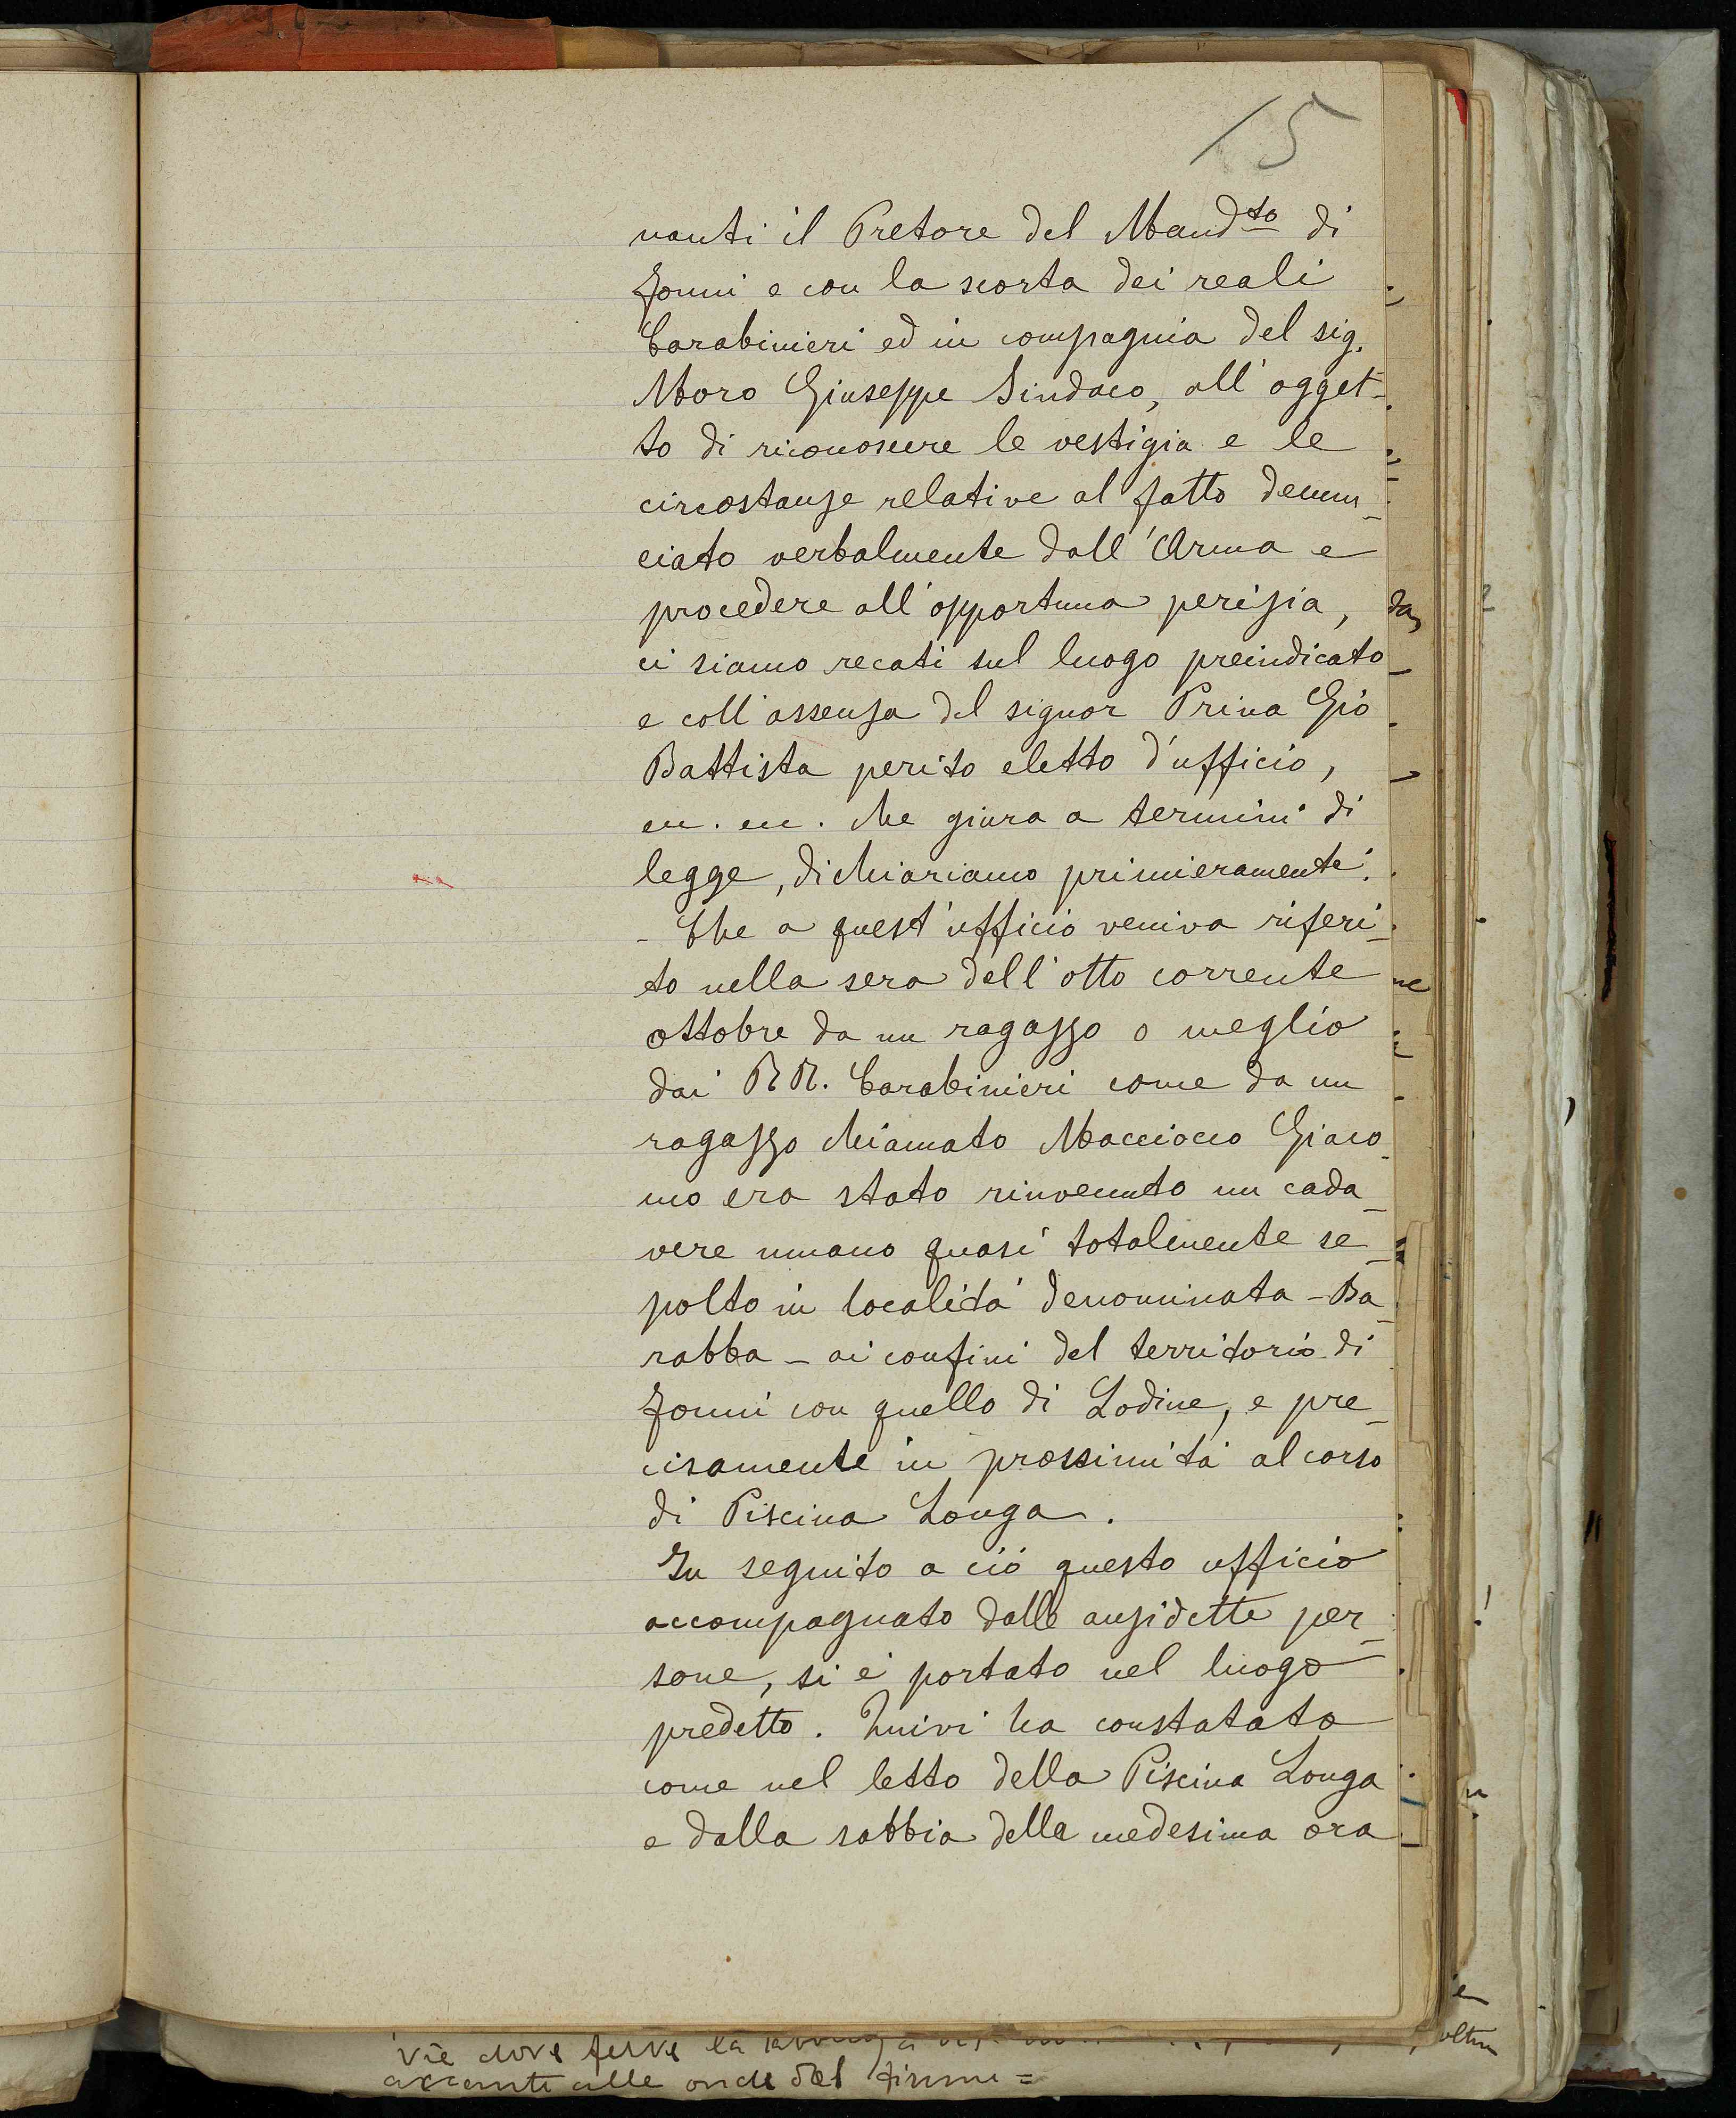 15
nanti il Pretore del Mand.to di
Fonni e con la scorta dei reali
Carabinieri ed in compagnia del sig.
Moro Giuseppe Sindaco, all'ogget-
to di riconoscere le vestigia e le
circostanze relative al fatto denun-
ciato verbalmente dall'Arma e
procedere all'opportuna perizia,
ci siamo recati sul luogo preindicato
e coll'assenza del signor Prina Gio
Battista perito eletto d'ufficio,
m. m. che giura a termini di
legge, dichiariamo primieramente:
- Che a quest'ufficio veniva riferi-
to nella sera dell'otto corrente
ottobre da un ragazzo o meglio
dai RR. Carabinieri come da un
ragazzo chiamato Macciocco Giaco-
mo era stato rinvenuto un cada-
vere umano quasi totalmente se-
polto in località denominata - Ba-
rabba - ai confini del territorio di
Fonni con quello di Lodine, e pre-
cisamente in prossimità al corso
di Piscina Longa.
In seguito a ciò questo ufficio
accompagnato dalle anzidette per-
sone, si è portato nel luogo
predetto. Quivi ha constatato
come nel letto della Piscina Longa
e dalla sabbia della medesima ora
vie dove ferve la
accanto alle onde del fiume =